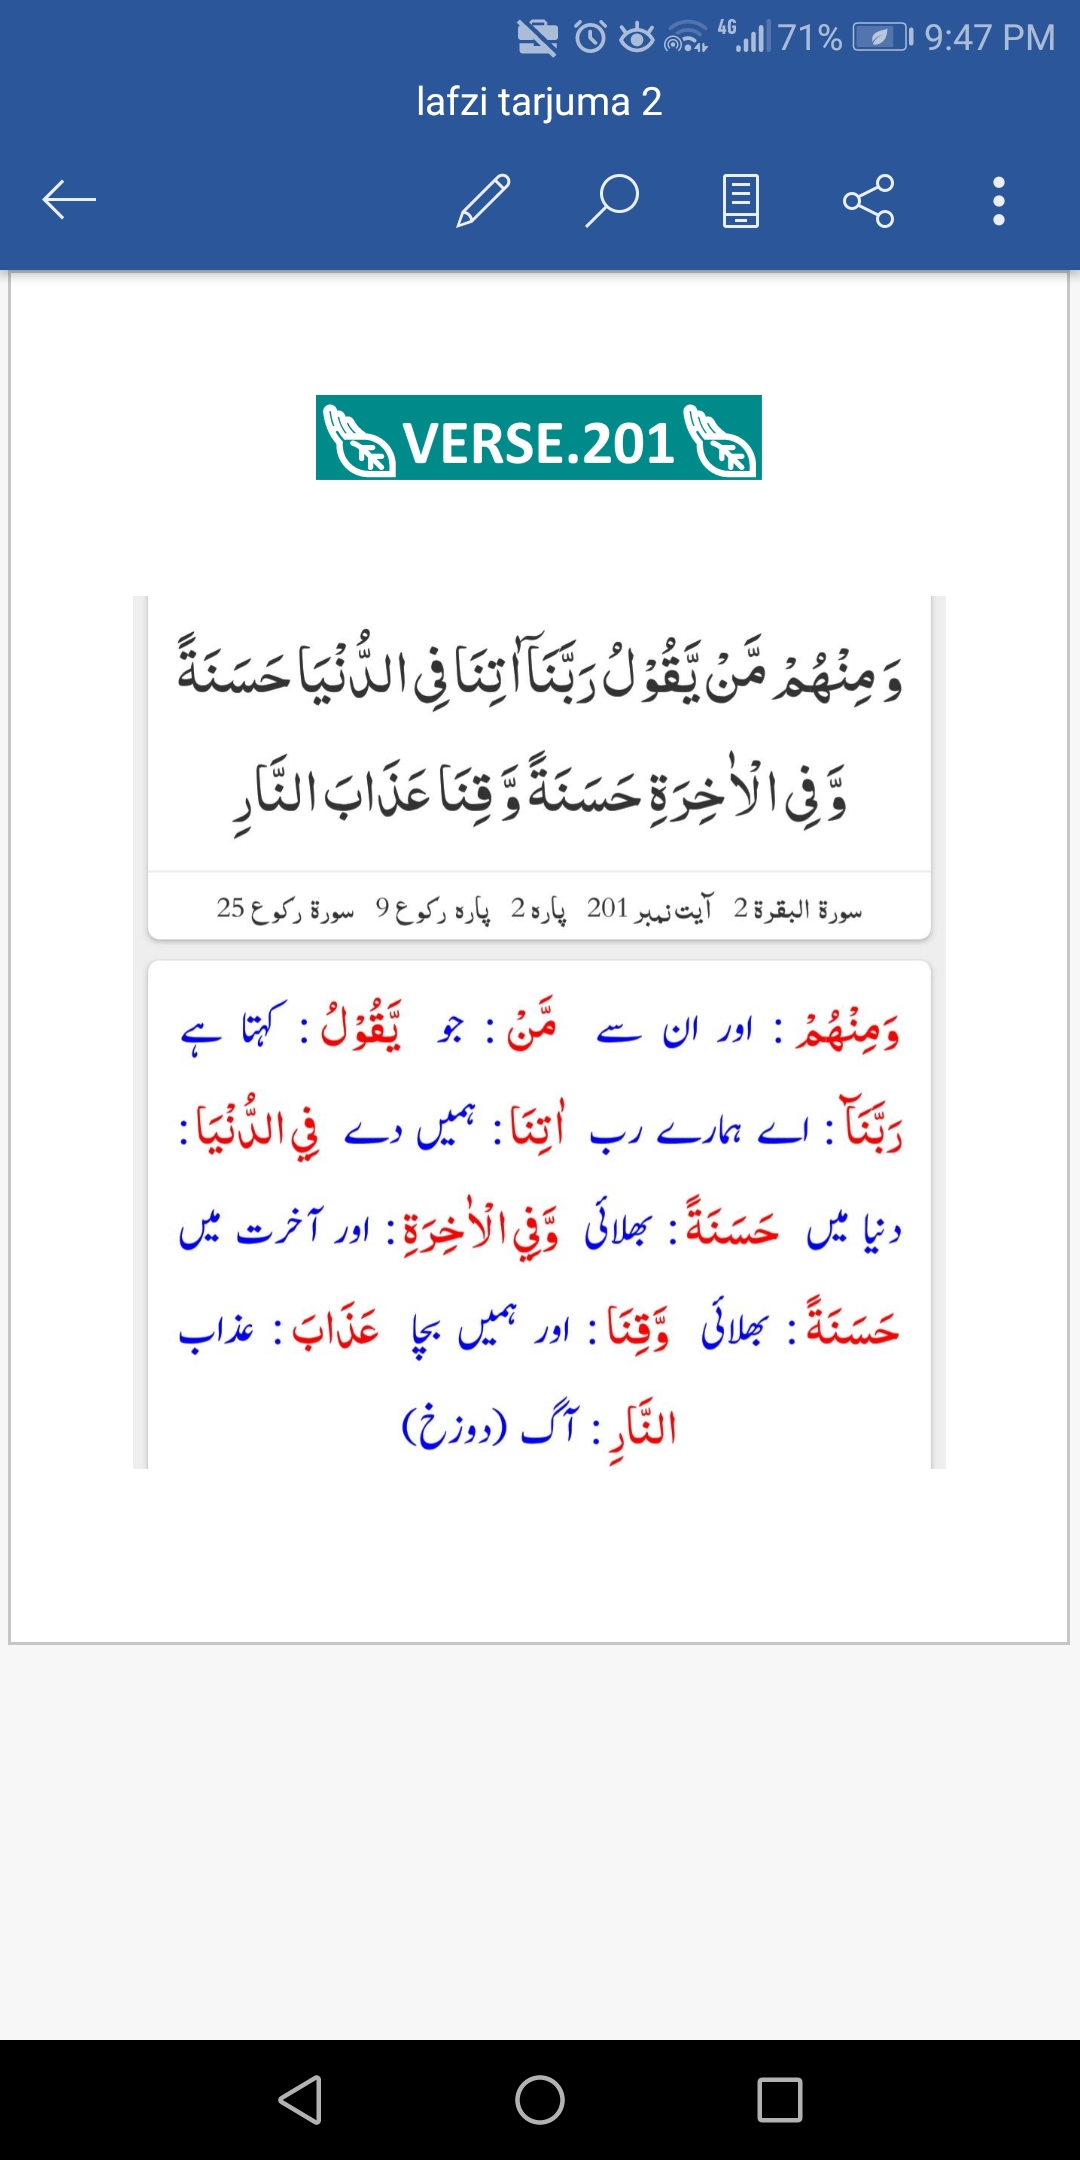 4G 71% 9:47 PM
lafzi tarjuma 2
VERSE.201
وَمِنْهُمْ مَّنْ يَّقُوْلُ رَبَّنَاۤ اٰتِنَا فِی الدُّنْیَا حَسَنَةً
وَّفِی الْاٰخِرَةِ حَسَنَةً وَّقِنَا عَذَابَ النَّارِ
سورۃ البقرۃ 2 آیت نمبر 201 پارہ 2 پارہ رکوع 9 سورۃ رکوع 25
وَمِنْهُمْ : اور ان سے مَّنْ : جو يَّقُوْلُ : کہتا ہے
رَبَّنَآ : اے ہمارے رب اٰتِنَا : ہمیں دے فِي الدُّنْيَا :
دنیا میں حَسَنَةً : بھلائی وَّفِي الْاٰخِرَةِ : اور آخرت میں
حَسَنَةً : بھلائی وَّقِنَا : اور ہمیں بچا عَذَابَ : عذاب
النَّارِ : آگ (دوزخ)